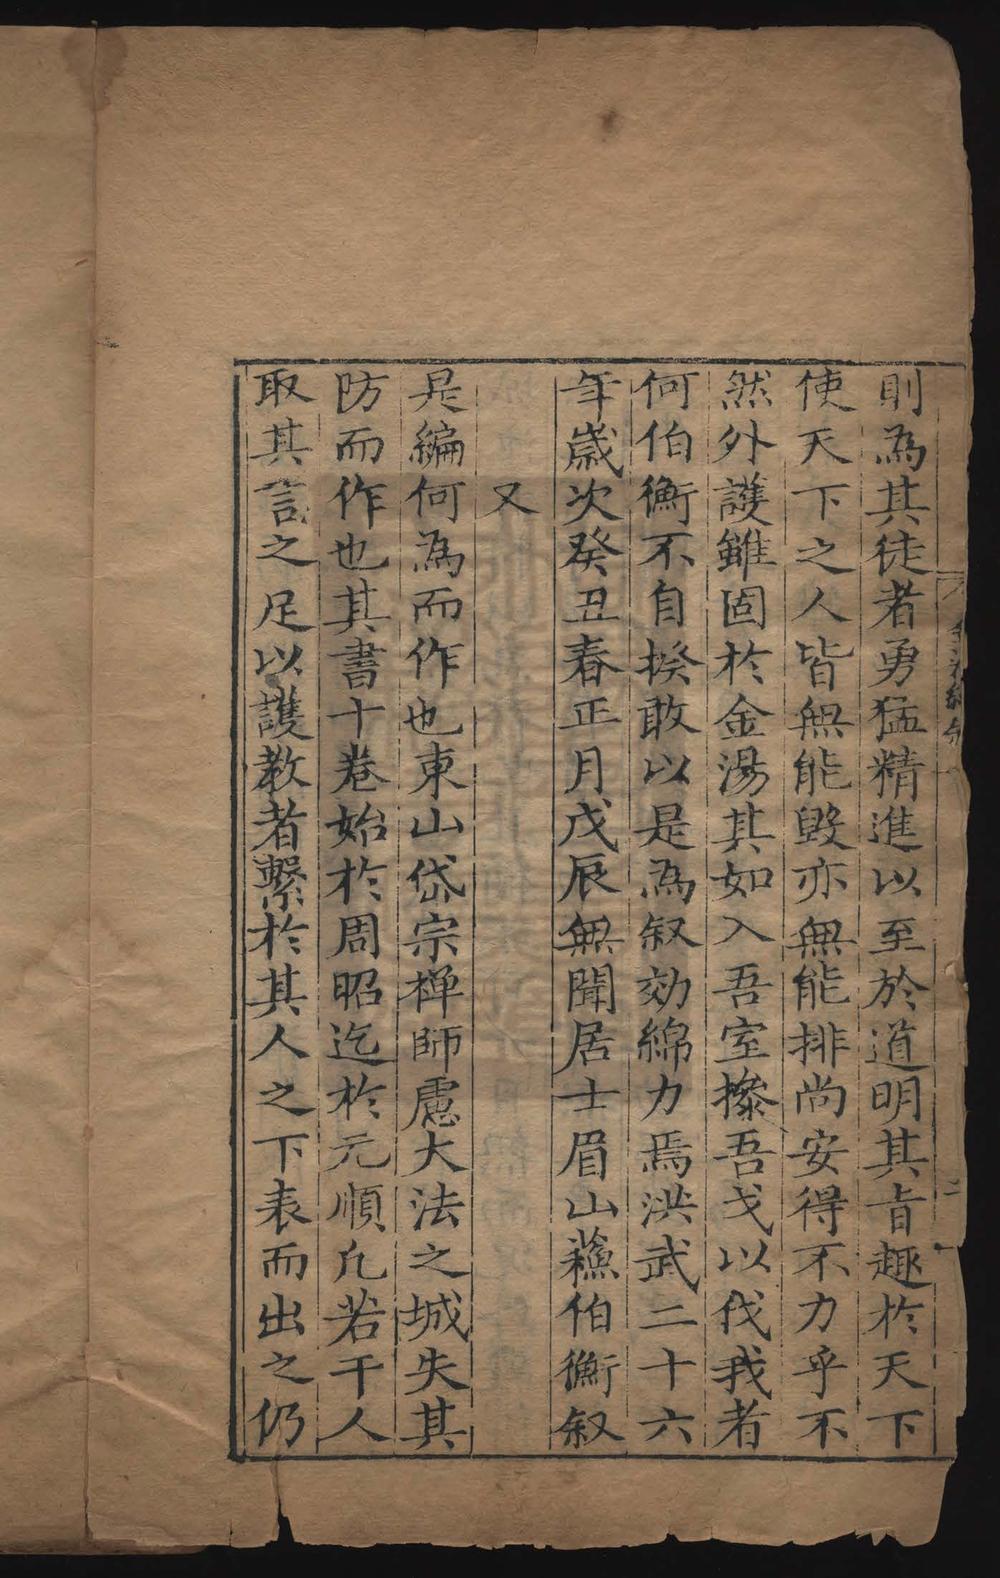 則為其徒者勇猛精進以至於道明其旨趣於天下
使天下之人皆無能毀亦無能排尚安得不力乎不
然外護雖固於金湯其如入吾室摻吾戈以伐我者
何伯衡不自揆敢以是為叙効綿力焉洪武二十六
年歲次癸丑春正月戊辰無聞居士眉山蘓伯衡叙
又
是編何為而作也東山岱宗禪師慮大法之城失其
防而作也其書十巻始於周昭迄於元順凢若干人
取其言之足以護教者繋於其人之下表而出之仍